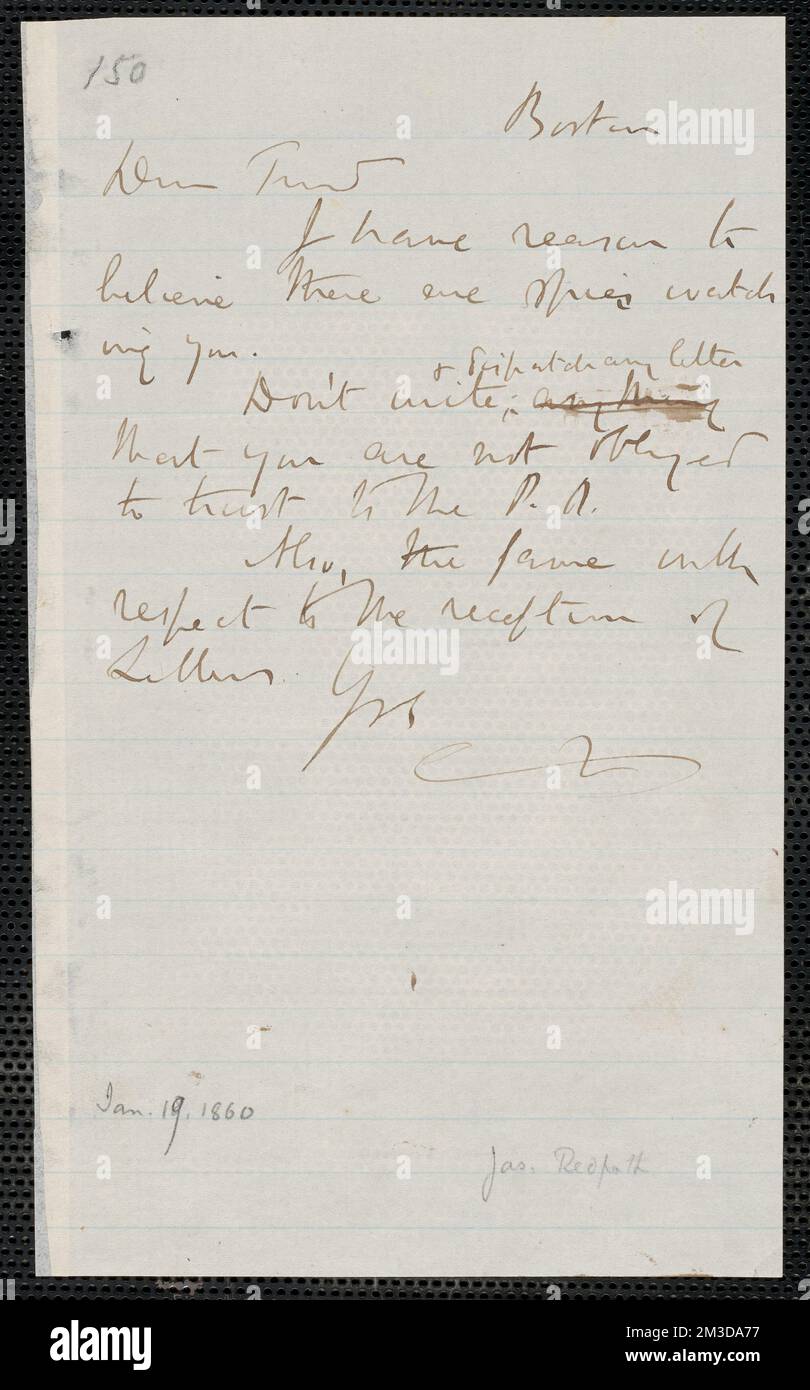 150
Boston
Dear Friend
I have reason to
believe there are spies watch
ing you.
& dispatch any letter
Don't write, anything
that you are not obliged
to trust to the P. O.
Also, the same with
respect to the reception of
Letters. Yrs
Jan. 19. 1860
Jas. Redpath
alamy
Image ID: 2M3DA77
www.alamy.com